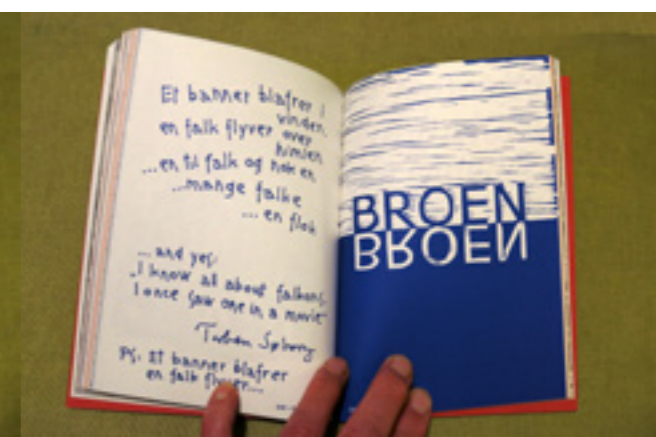 Et banner blafrer i
vinden,
en falk flyver over
himlen
...en til falk og nok en
...mange falke
... en flok
... and yes:
I know all about falkons,
I once saw one in a movie
PS. et banner blafrer
en falk flyver....
BROEN
BROEN